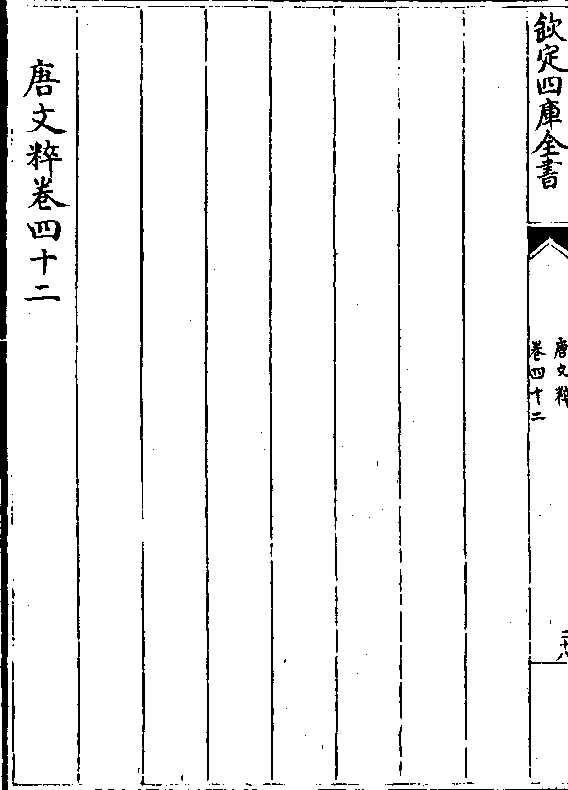 欽定四庫全書
唐文粹
卷四十二
唐文粹卷四十二